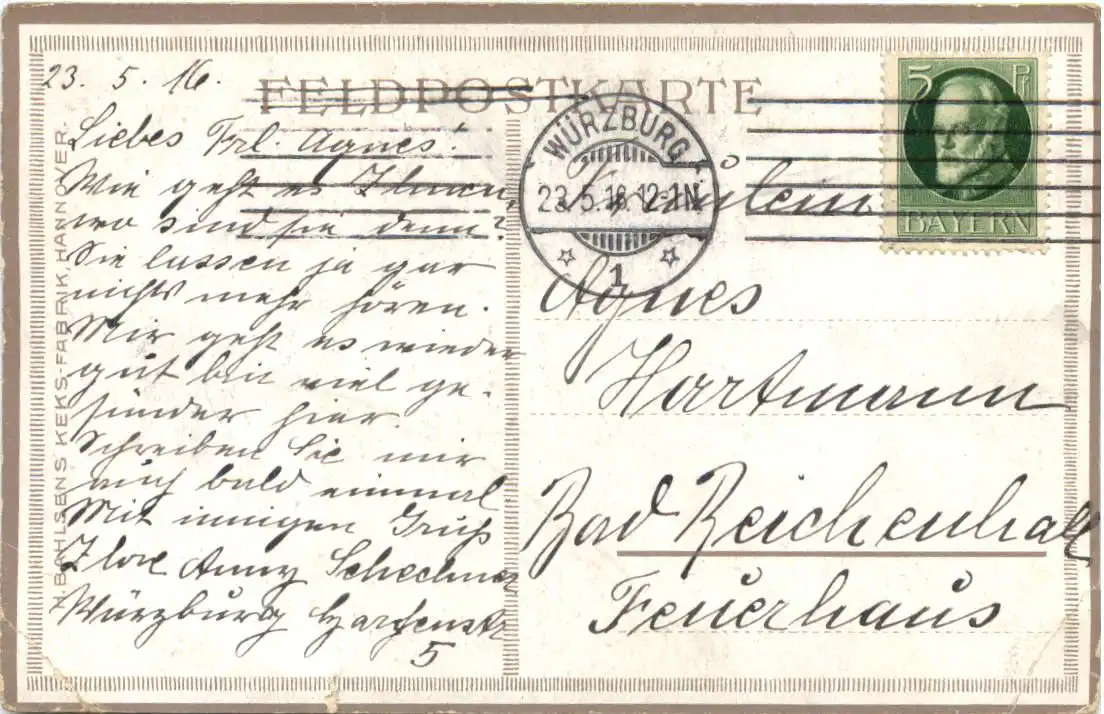 23. 5. 16.
FELDPOSTKARTE
Liebes Frl. Agnes!
Wie geht es Ihnen,
wo sind sie denn?
Sie lassen ja gar
nichts mehr hören.
Mir geht es wieder
gut bin viel ge-
sünder hier.
Schreiben Sie mir
auch bald einmal
Mit innigen Gruß
Ihre Anny
Würzburg
5
H. BAHLSENS KEKS-FABRIK, HANNOVER.
WÜRZBURG
23.5.16 12-1N
1
5 Pf
BAYERN
Fräulein
Agnes
Hartmann
Bad Reichenhall
Feuerhaus